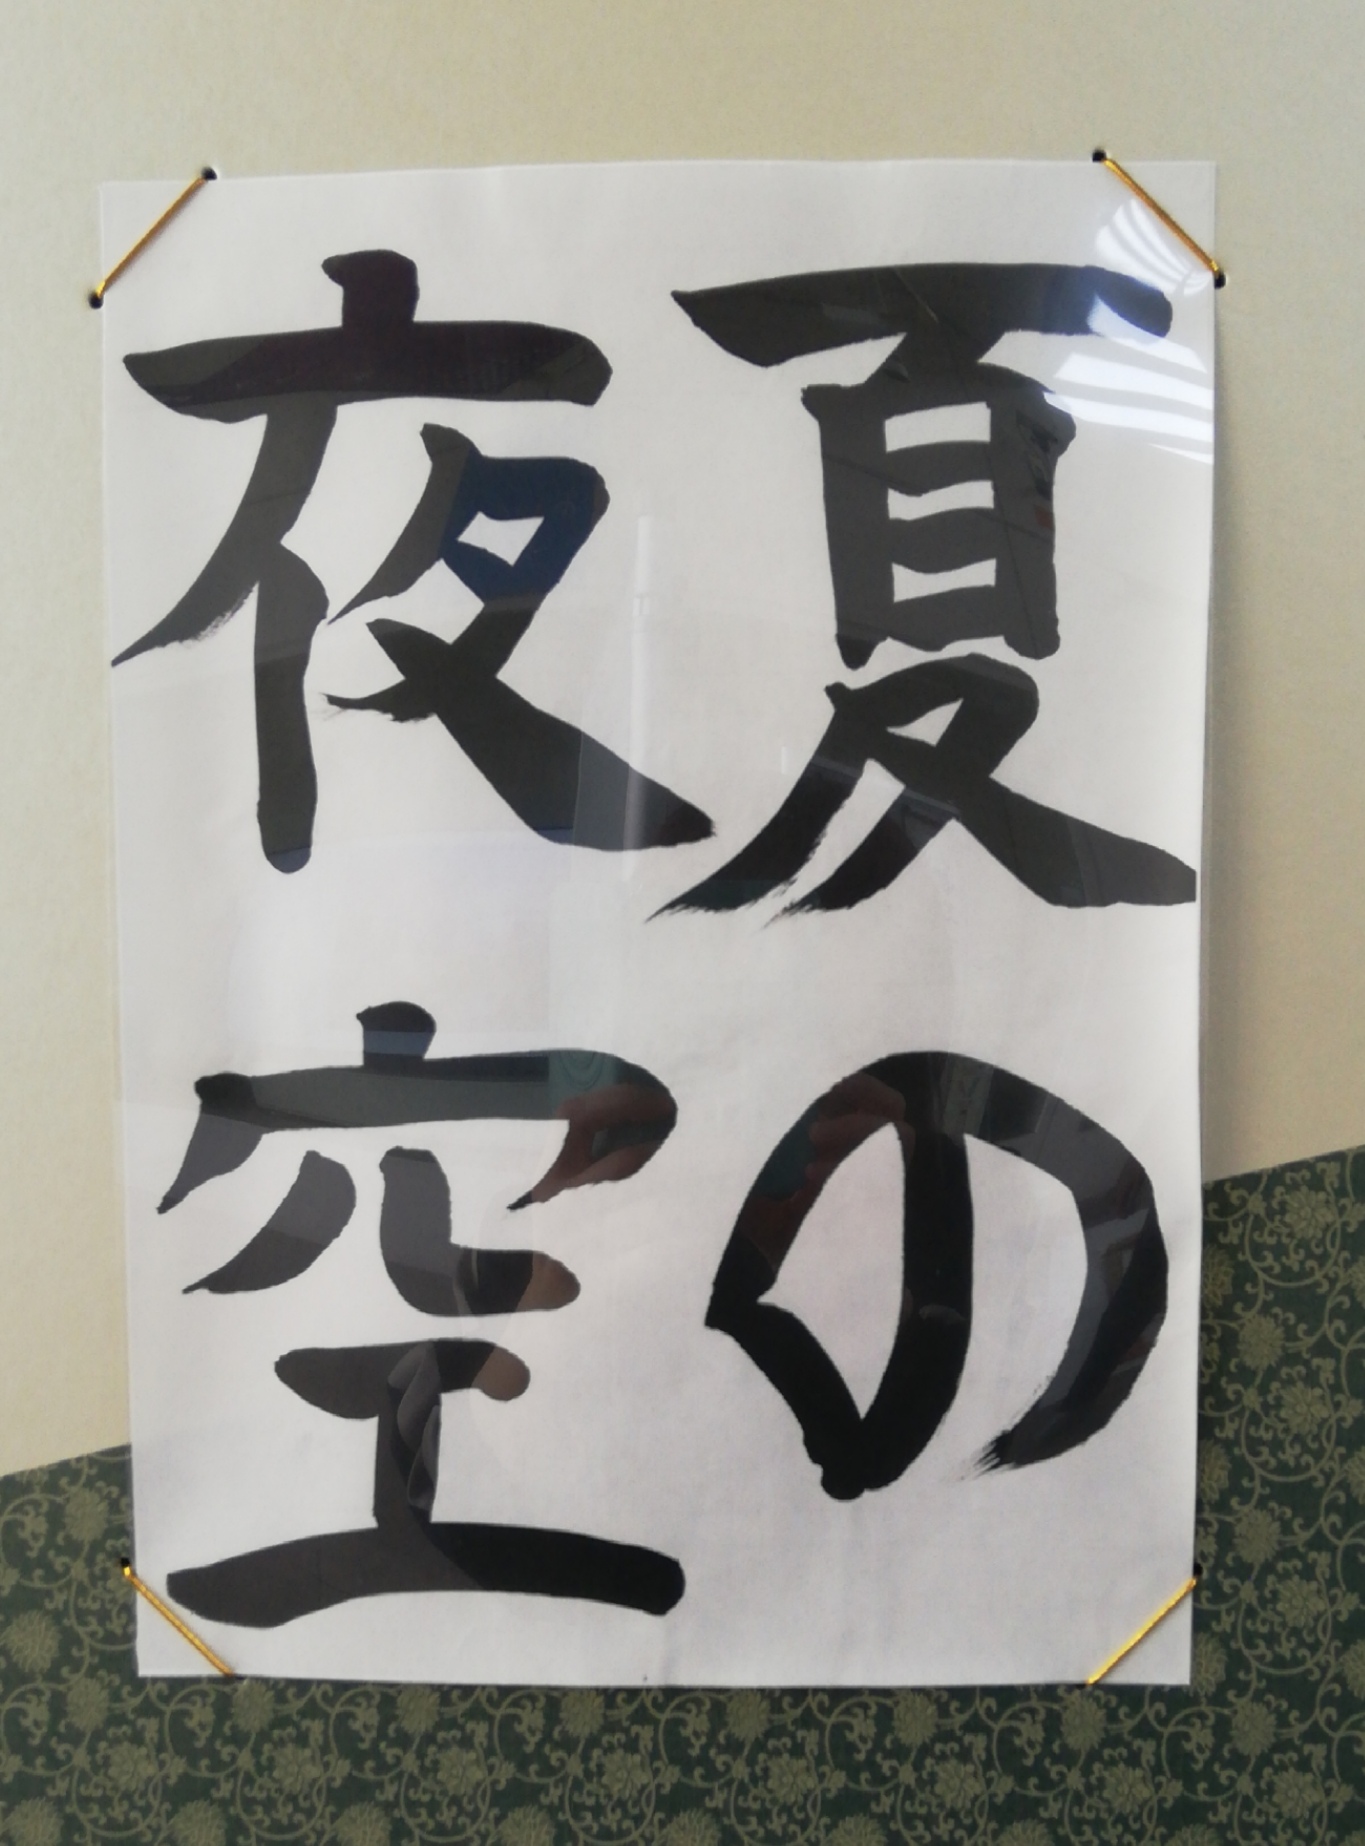 夏の
夜空